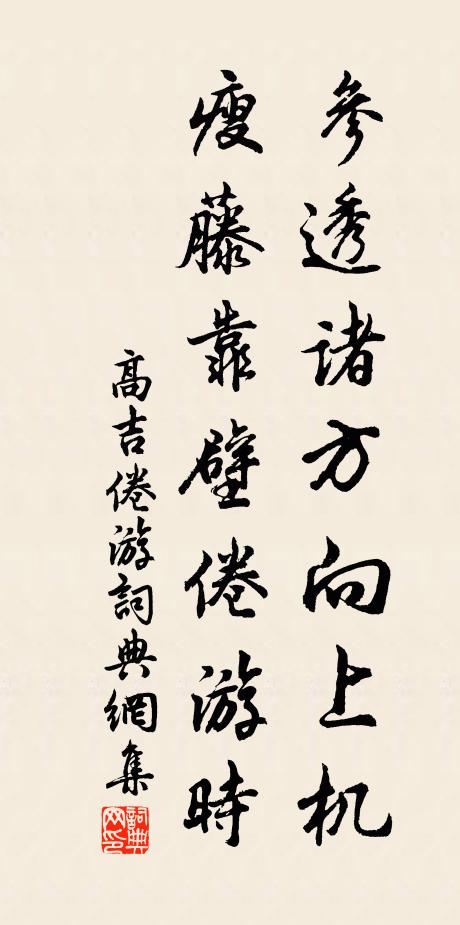 參透诸方向上机
瘦藤靠壁倦游時
高吉倦游詞典網集
詞典網印